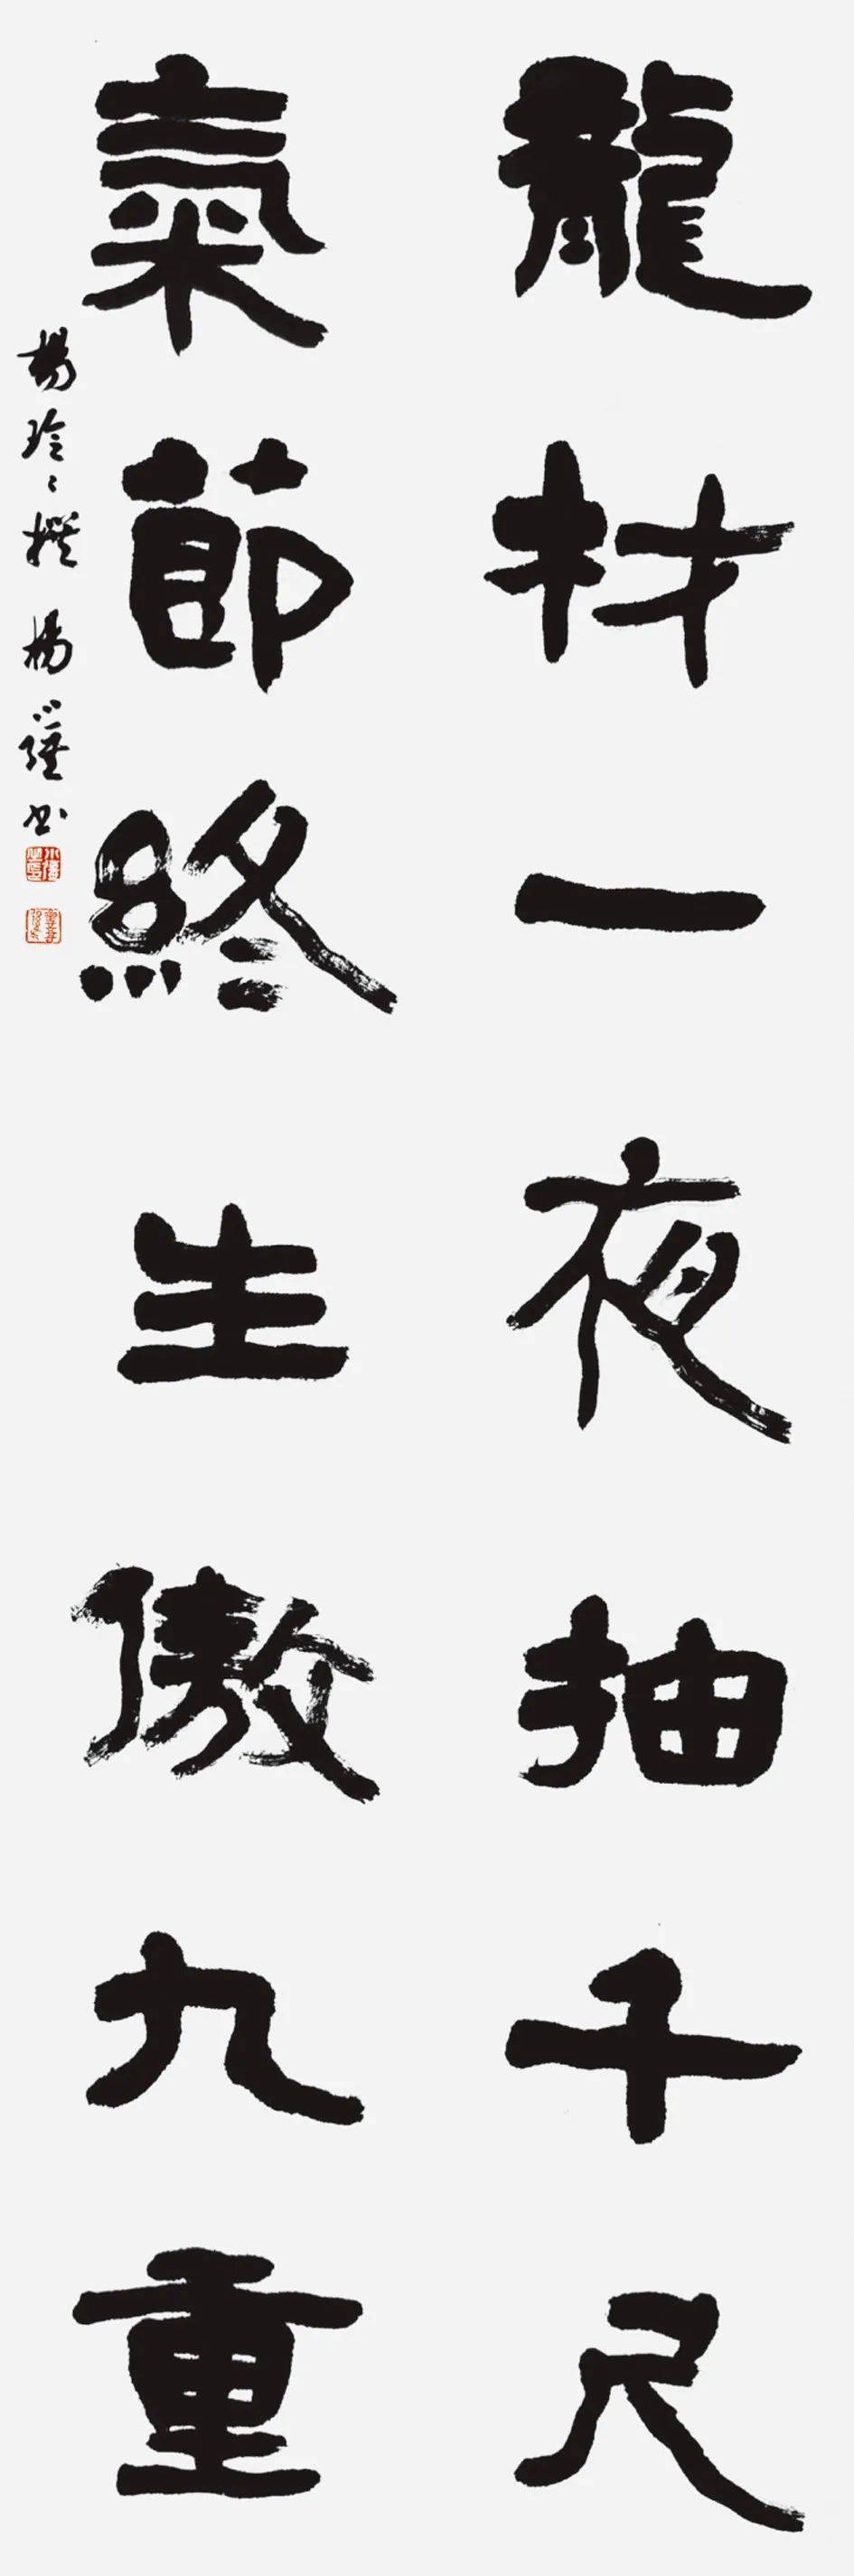 龍材一夜抽千尺
氣節終生傲九重
楊玲玲撰 楊小躍書